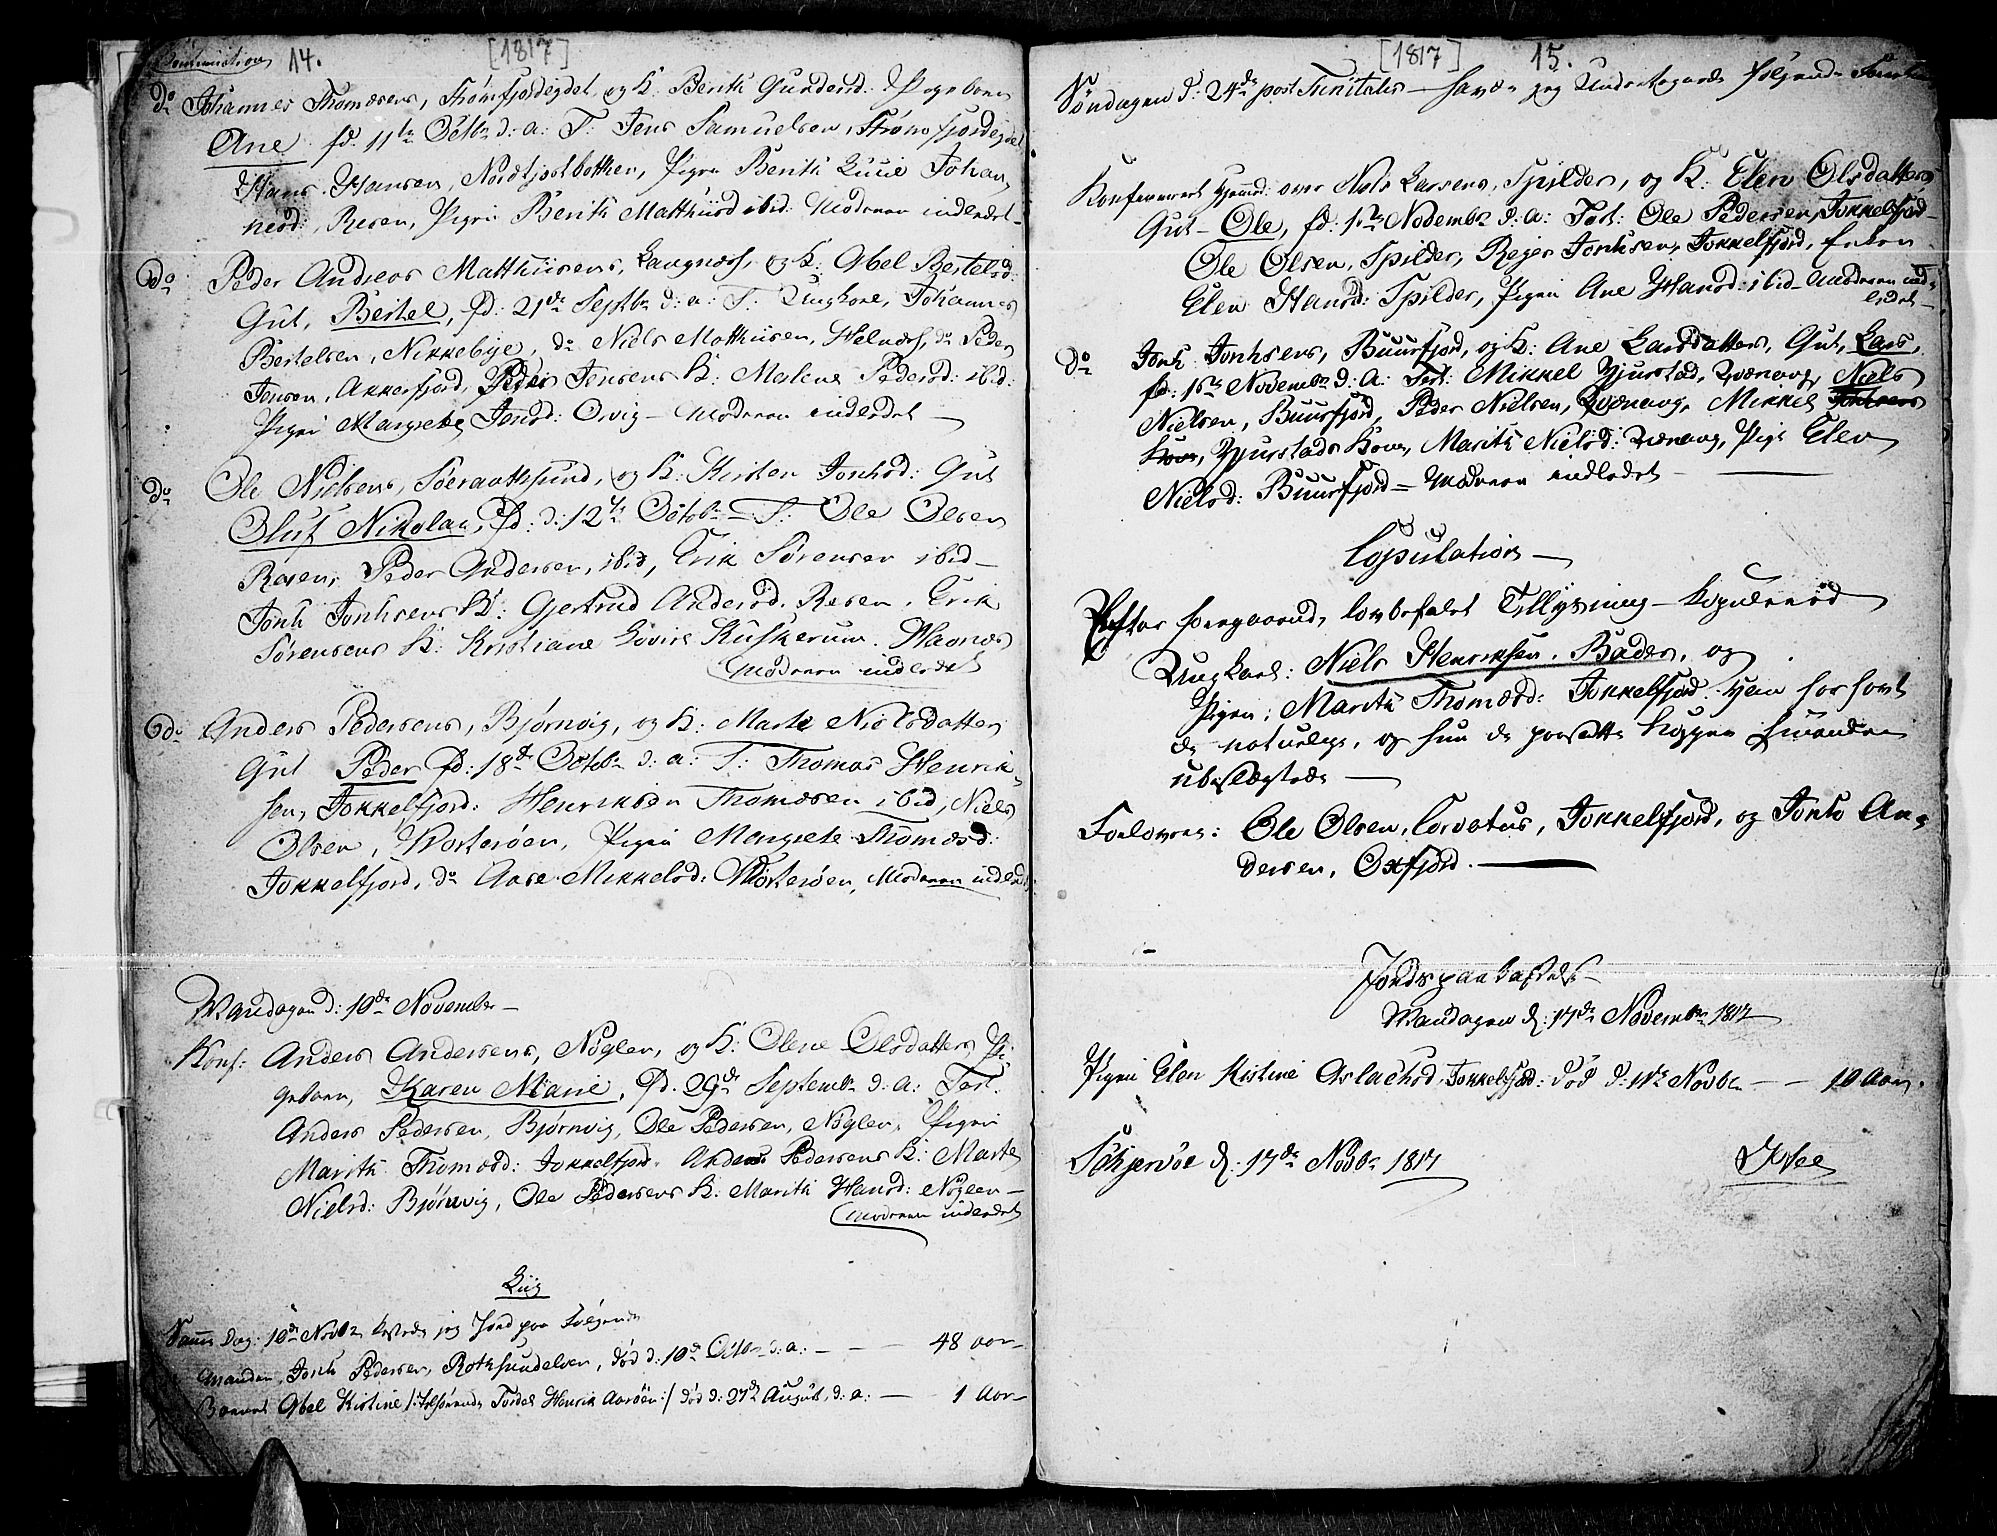 14. [1817]
do Johannes Thomæsens, og K. Berith Gundersd: Pigebarn
Ane fd. 11te Octbr d: a: T: Jens Samuelsen,
Hans Hansen, Nordtjostbotten, Pigen Berith Lucie Johan
nesd:, Reisen, Pigen Berith Matthiisd ibid: Moderen indledet
do Peder Andreas Matthiisens, Laugnæss, og K: Abel Bertelsd:
Gut, Bertel, fd: 21de Septbr d: a: T. Ungkarl, Johannes
Bertelsen, Nikkebye, do Niels Matthiisen, Helnæss, do Peder
Jensen, Akkerfjord, Peder Jensens K: Marlene Pedersd: ibid:
Pigen Margrete Jensd: Qvig – Moderen indledet
do Ole Nielsens, og K: Kirsten Jonhsd: Gut
Oluf Nikolai, fd: d: 12te Octobr – T: Ole Olsen
Reisen, Peder Andersen, ibid, Erik Sørensen ibid –
Jonh Jonhsens K: Gjertrud Andersd. Reisen, Erik
Sørensens K: Kristiane Lovise Kuskerum. Havnæs
Moderen indledet
do Anders Pedersens, Bjørnvig, og K: Marte Nielsdatter
Gut Peder fd: 18de Octobr d: a: T: Thomas Henrik-
sen, Jokkelfjord: Henriksen Thomæsen ibid, Niels
Olsen, Vorterøen, Pigen Margrete Thomæsd:
Jokkelfjord, do Aase Mikkelsd: Vorterøen, Moderen indledet
Mandagen d: 10de November –
Konf: Anders Andersens, Nøglen, og K: Olene Olsdatter, Pi
gebarn, Karen Marie, fd. 29de Septembr d: a: Test.
Anders Pedersen, Bjørnvig, Ole Pedersen, Nøglen, Pigen
Marith Thomæsd: Jokkelfjord. Anders Pedersens K: Marte
Nielsd: Bjørnvig, Ole Pedersens K: Marith Hansd: Nøglen –
Moderen indledet
Liig
Samme Dag: 10de Novbr kastede jeg Jord paa følgende
Manden, Jonh Pedersen, Rotsundelven, død d: 10de Octbr d: a: – – – 48 aar –
Barnet Abel Kistine /: tilhørende Henrik Aarøen :/ død d: 27de August, d: a: – 1 Aar –
[1817] 15.
Søndagen d: 24de post Trinitatis – havde jeg Undertegnede følgende
Konfirmeret Hjemd: over Niels Larsens, Spilder, og K: Elen Olsdatters
Gut – Ole, fd: 1te Novembr d: a: Test: Ole Pedersen, Jokkelfjord –
Ole Olsen, Spilder, Jonhsen, Jokkelfjord, Enken
Elen Hansd: Spilder, Pigen Ane Hansd: ibid – Moderen ind-
ledet –
do Jonh Jonhsens, Buursfjord, og K: Ane Larsdatters, Gut, Lars,
fd: Novembr d: a: Test: Mikkel Niels
Nielsen, Buursfjord, Peder Nielsen, Mikkel
Marith Nielsd: Pige Elen
Nielsd: Buursfjord – Moderen indledet –
Copulation –
Efter foregaaende, lovbefalet Tillysning – kopuleered
Ungkarl: Niels Henriksen. Badder, og
Pigen: Marith Thomæsd: Jokkelfjord. Han har havt
de naturlige, og hun de paasatte Kopper hinanden
ubeslægtede –
Forlovere: Ole Olsen, Jokkelfjord, og Jonh An-
dersen, Oxfjord. –
Jordspaakastelse –
Mandagen d: 17de Novembr 1817
Pigen Elen Kistine Aslachsd, Jokkelfjord: død d: Novbr – – 10 Aar.
Skjervøe d: 17de Novbr 1817